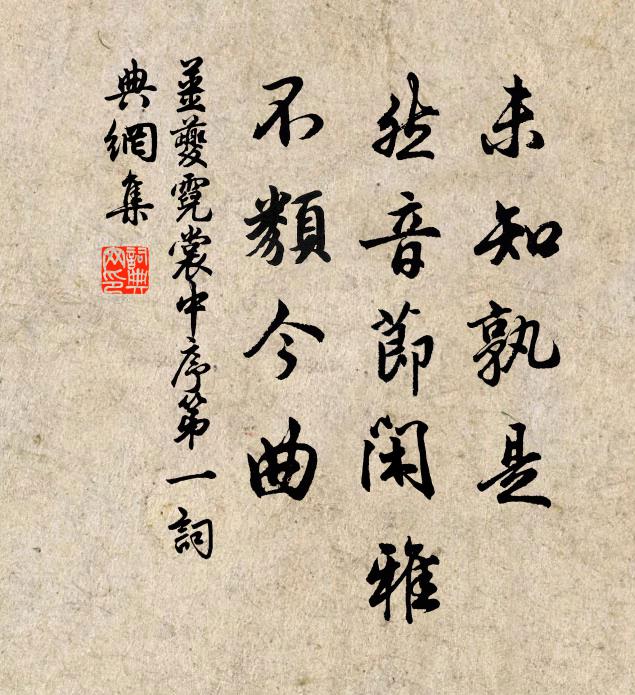 未知孰是
然音節閑雅
不類今曲
姜夔霓裳中序第一詞
典網集
詞典網印